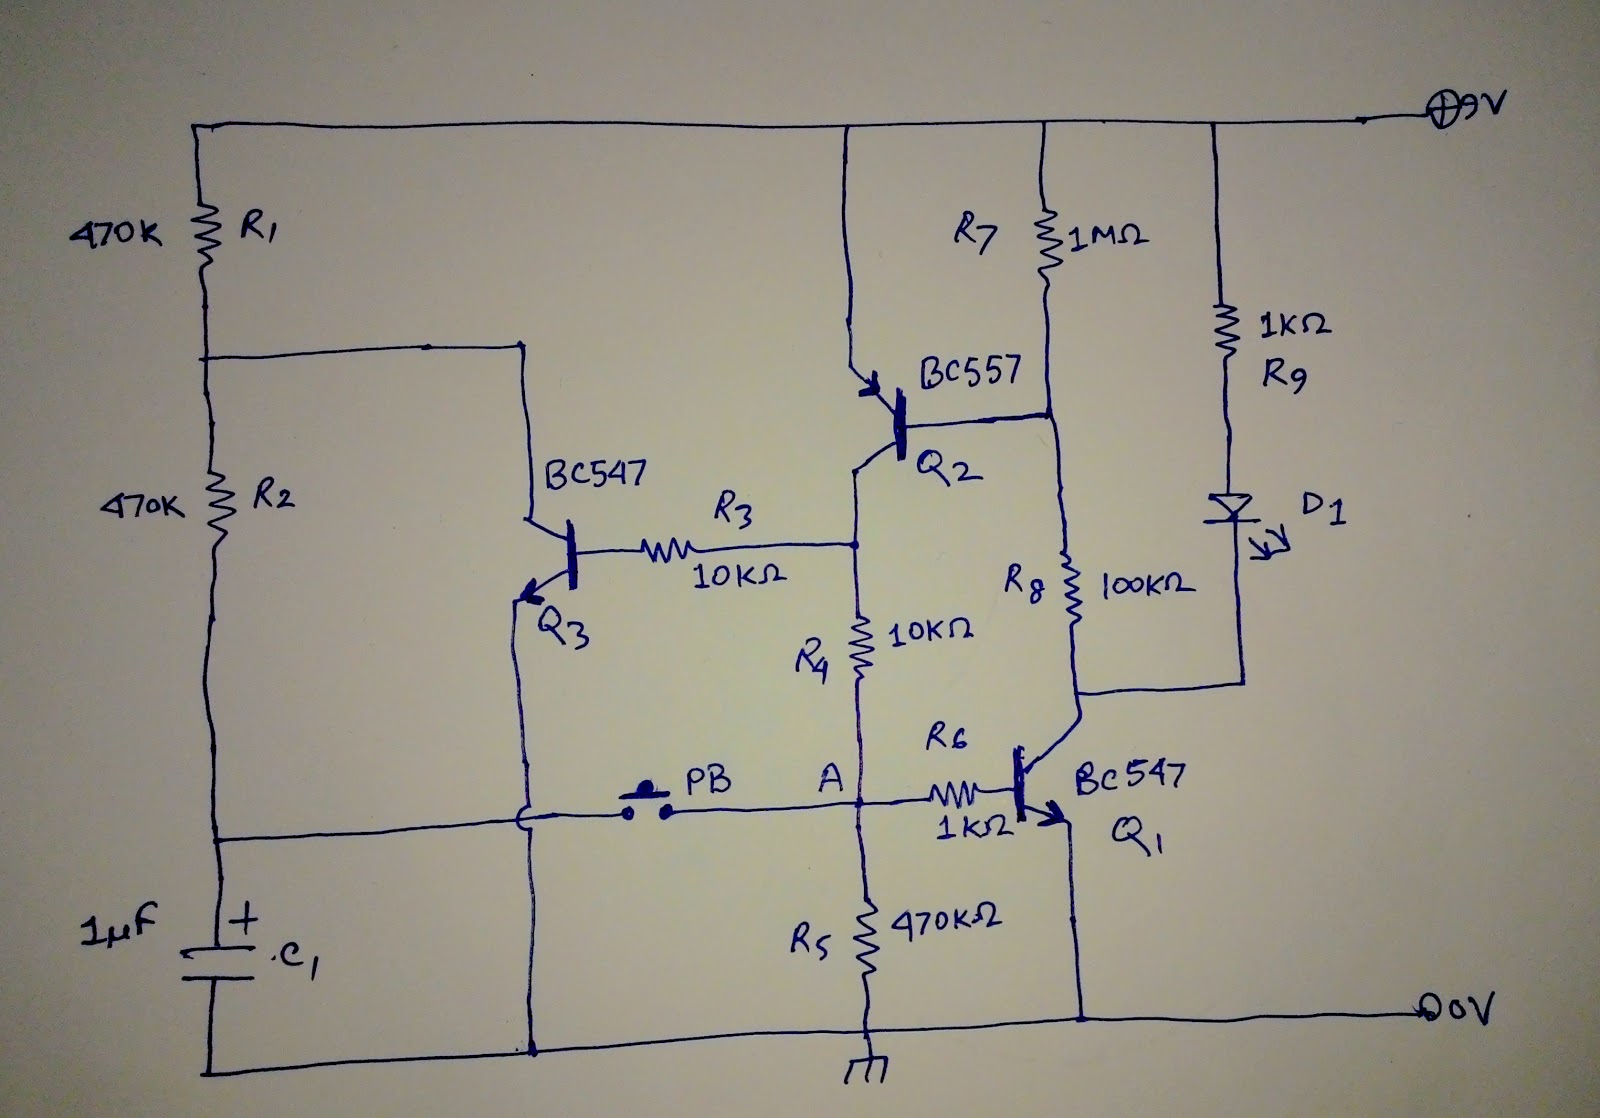 ⊕9V
470K
R1
R7
1MΩ
1KΩ
R9
BC557
Q2
D1
470K
R2
BC547
R3
10KΩ
Q3
R8
100KΩ
R4
10KΩ
PB
A
R6
1KΩ
BC547
Q1
1μF
+
C1
R5
470KΩ
0V